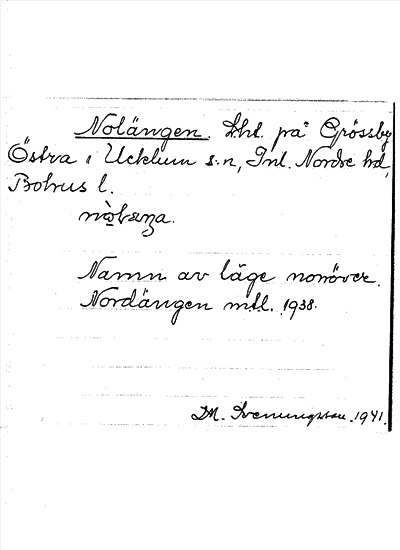 Nolängen. Lht. på Grössby
Östra i Ucklum s:n, Inl. Nordre hd,
Bohus l.
Namn av läge norröver.
Nordängen mtl. 1938.
D.M. Svenungsson. 1941.